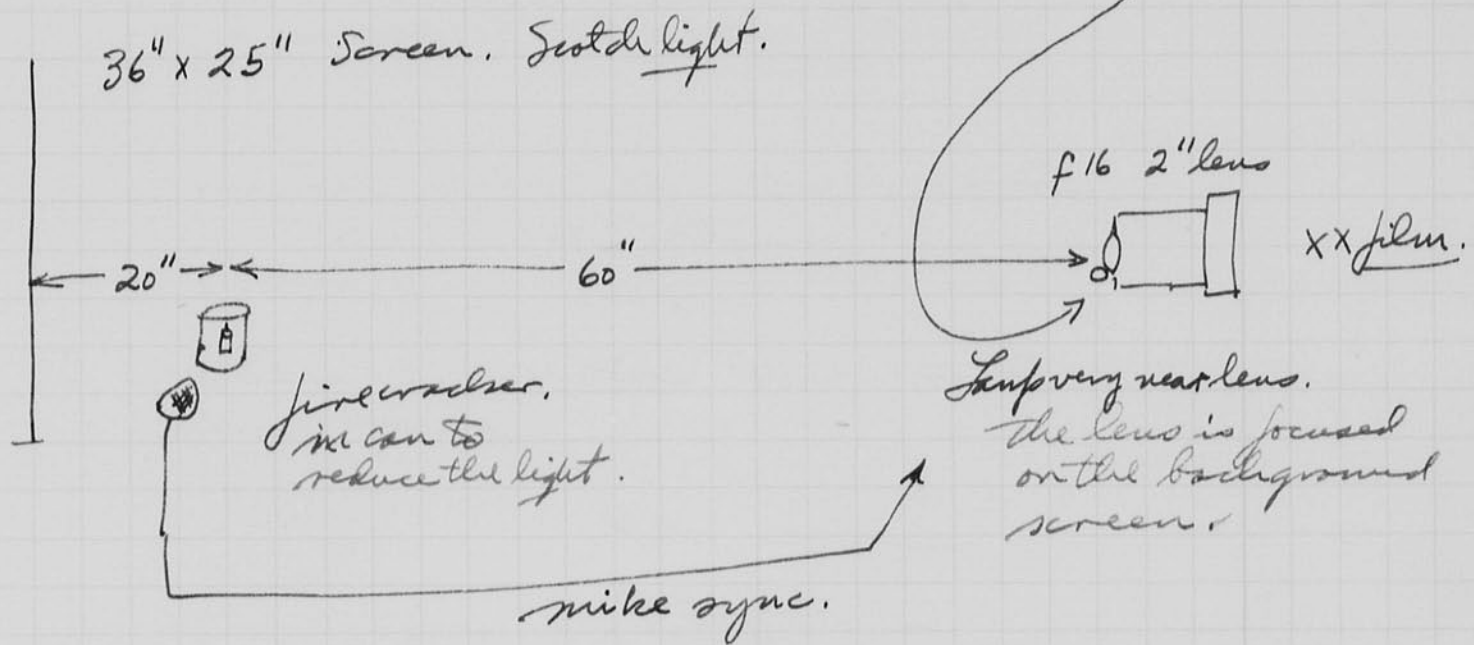 36" x 25" Screen. Scotch light.
f 16 2" lens
xx film.
20"
60"
firecracker.
in can to
reduce the light.
Lamp very near lens.
the lens is focused
on the background
screen.
mike sync.